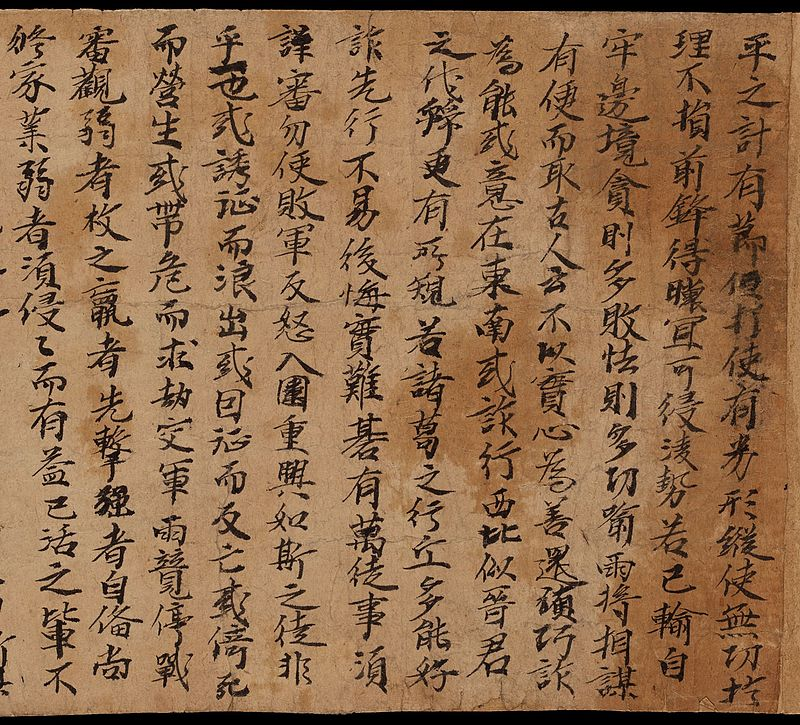 平之計有莭但打使有劣形縱使無功於
理不損前鋒得曠宜可侵淩勢若已輸自
牢邊境貪則多敗怯則多功喻兩將相謀
有便而取古人云不以實心為善還須巧詐
為能或意在東南或詐行西北似晉君
之伐虢更有所規若諸葛之行丘多能好
詐先行不易後悔實難碁有萬徒事須
詳審勿使敗軍反怒入圍重興如斯之徒非
乎一也或誘征而浪出或因征而反亡或倚死
而營生或帶危而求劫交軍兩競停戰
審觀弱者枚之羸者先擊強者自俻尚
修家業弱者須侵〻而有益已活之輩不